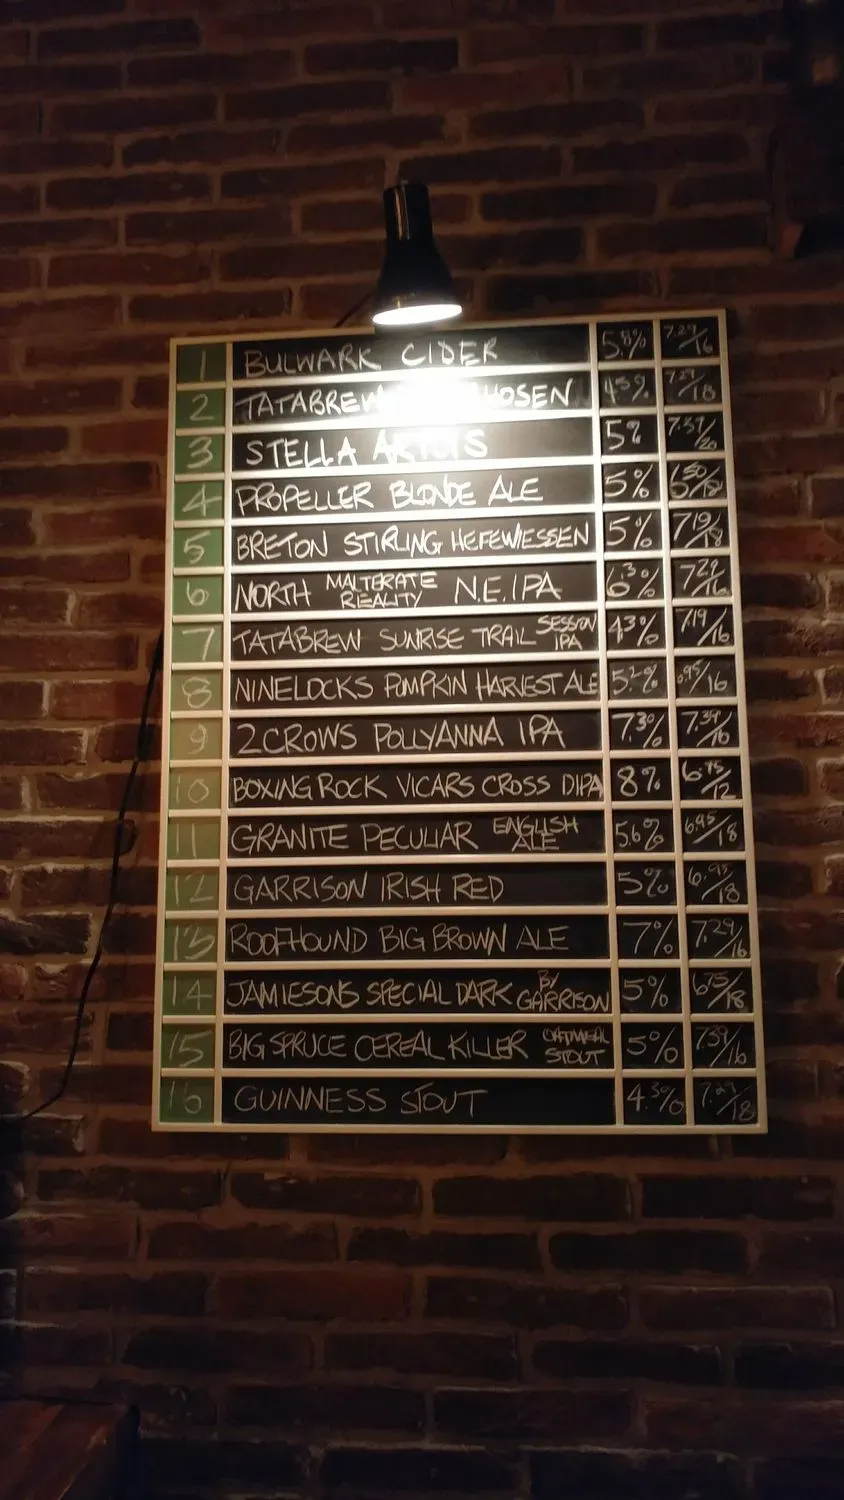 1 BULWARK CIDER 5.8% 7.29/16
2 TATABREW HOSEN 4.5% 7.29/18
3 STELLA ARTOIS 5% 7.57/20
4 PROPELLER BLONDE ALE 5% 6.50/18
5 BRETON STIRLING HEFEWIESSEN 5% 7.19/18
6 NORTH MALTERATE REALITY N.E.IPA 6.3% 7.29/16
7 TATABREW SUNRISE TRAIL SESSION IPA 4.3% 7.19/16
8 NINELOCKS PUMPKIN HARVEST ALE 5.2% 6.95/16
9 2CROWS POLLYANNA IPA 7.3% 7.39/16
10 BOXING ROCK VICARS CROSS DIPA 8% 6.75/12
11 GRANITE PECULIAR ENGLISH ALE 5.6% 6.95/18
12 GARRISON IRISH RED 5% 6.95/18
13 ROOFHOUND BIG BROWN ALE 7% 7.29/16
14 JAMIESONS SPECIAL DARK BY GARRISON 5% 6.75/18
15 BIG SPRUCE CEREAL KILLER OATMEAL STOUT 5% 7.39/16
16 GUINNESS STOUT 4.3% 7.29/18